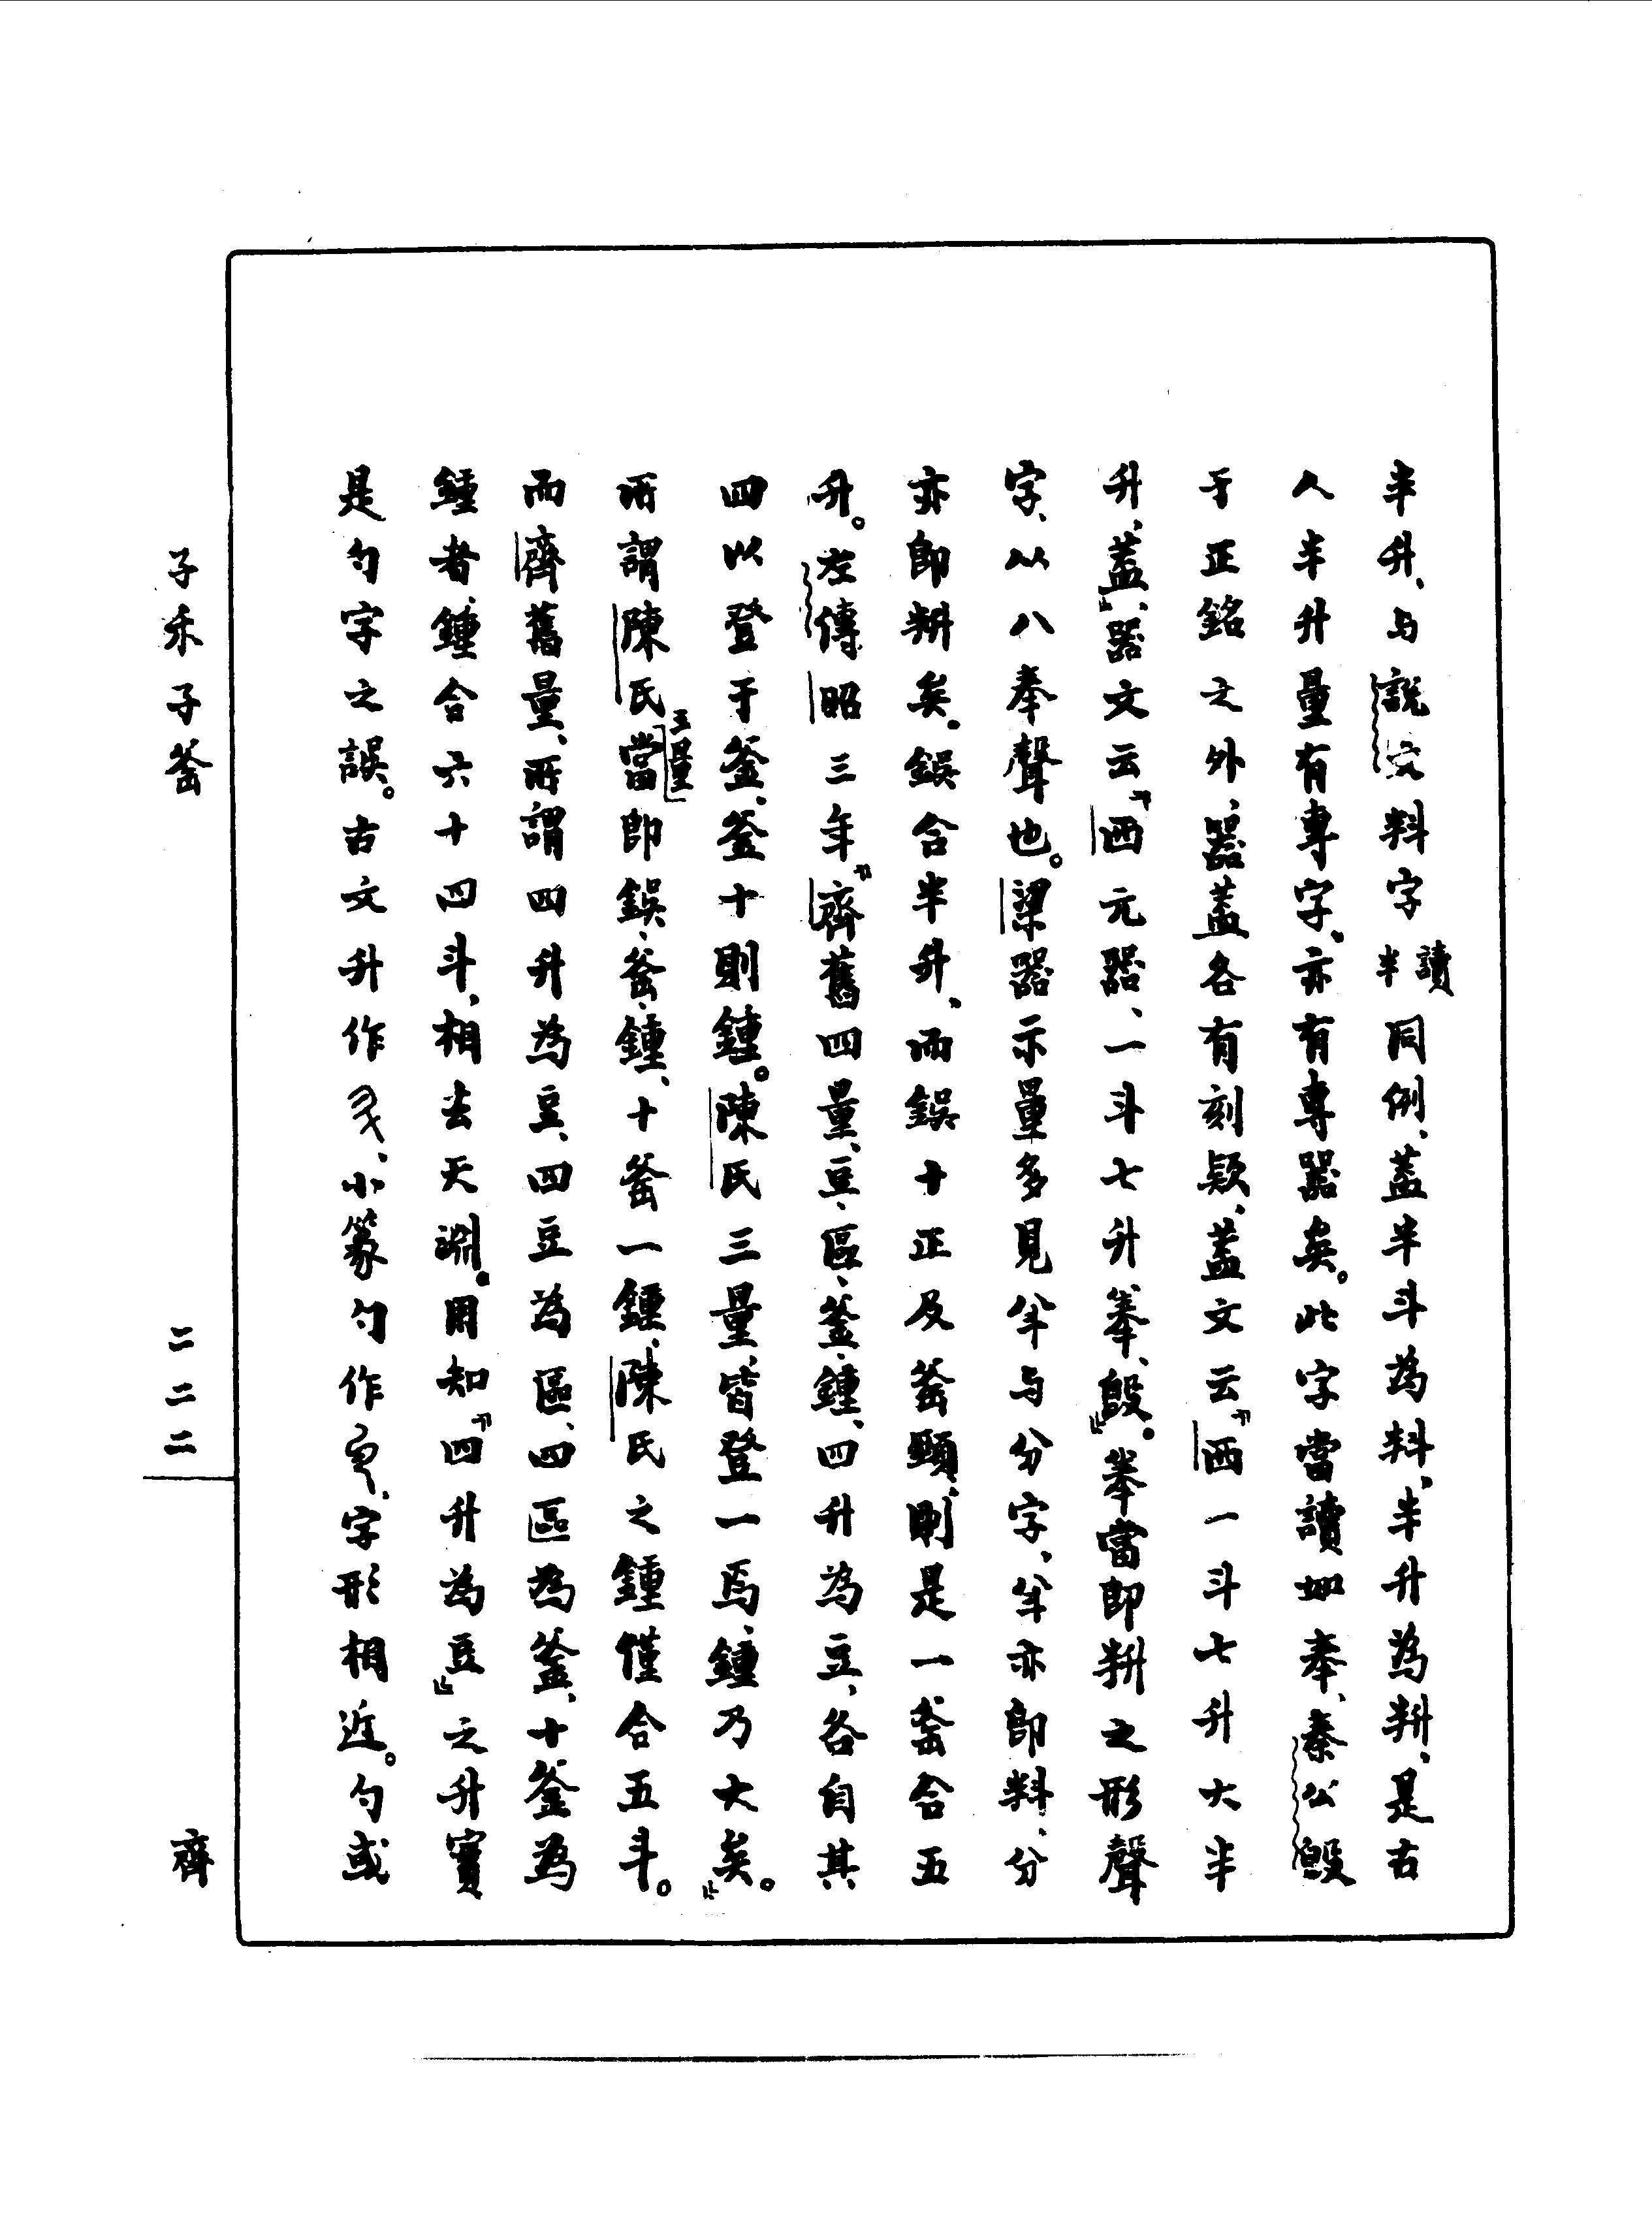 半升、与説文料字讀半同例、蓋半斗為料、半升為㪵、是古
人半升量有專字、亦有專器矣。此字當讀如奉、秦公𣪘
于正銘之外、器蓋各有刻款、蓋文云『西一斗七升大半
升、蓋』、器文云『西元器、一斗七升䇦、𣪘』。䇦當即㪵之形聲
字、从八奉聲也。梁器示量多見㸬与分字、㸬亦即料、分
亦即㪵矣。鋘合半升、而鋘十正及釜頸、則是一釜合五
升。左傳昭三年『齊舊四量、豆、區、釜、鍾、四升為豆、各自其
四以登于釜、釜十則鍾。陳氏三量、皆登一焉、鍾乃大矣。』
所謂陳氏三量當即鋘、釜、鍾、十釜一鍾、陳氏之鍾僅合五斗。
而齊舊量、所謂四升為豆、四豆為區、四區為釜、十釜為
鍾者、鍾合六十四斗、相去天淵。用知『四升為豆』之升實
是勺字之誤。古文升作、小篆勺作、字形相近。勺或
子禾子釜 二二二 齊